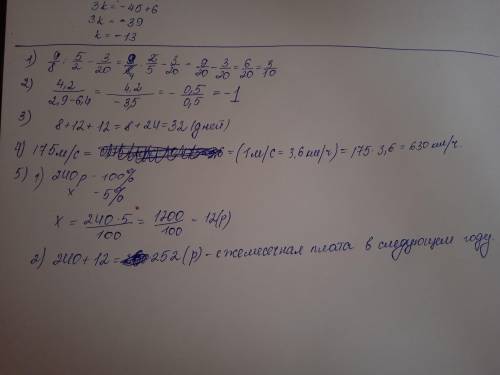 3k = -45+6
3k = -39
k = -13
1) 9/8 : 5/2 - 3/20 = 9/8 · 2/5 - 3/20 = 9/20 - 3/20 = 6/20 = 3/10
2) 4,2/2,9-6,4 = 4,2/-3,5 = - 0,5/0,5 = -1
3) 8+12+12 = 8+24 = 32 (дней)
4) 175 м/с = = (1 м/с = 3,6 км/ч) = 175 · 3,6 = 630 км/ч.
5) 1) 240 р - 100%
x - 5%
x = 240·5/100 = 1200/100 - 12(р)
2) 240+12 = 252 (р) - ежемесячная плата в следующем году.